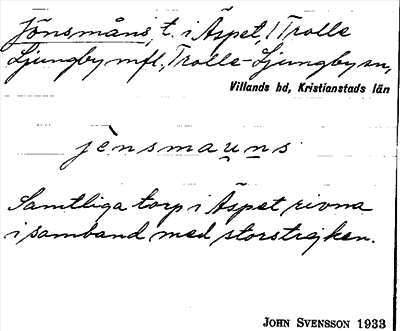 Jönsmåns, t. i Äspet, Trolle
Ljungby mfl, Trolle-Ljungby sn,
Villands hd, Kristianstads län
jènsmau̲n̲s
Samtliga torp i Äspet rivna
i samband med storstrejken.
JOHN SVENSSON 1933